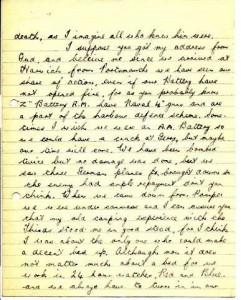 death, as I imagine all who knew him were.
I suppose you got my address from
and believe me since we arrived at
Harwich from Portsmouth we have seen our
share of action, even if our Battery have
not opened fire, for as you probably know
"Z" Battery R.M. have Naval 4" guns and are
a part of the harbour defence scheme. Some-
times I wish we were an A.A. Battery so
we could have a crack at them, but maybe
our time will come. We have been bombed
twice but no damage was done, but we
saw three German planes brought down so
the enemy had ample repayment don't you
think. When we came down from
we were under canvas and I can assure you
that my old camping experience with the
stood me in good stead, for I think
I was about the only one who could make
a decent bed up. Although now it does
not matter much about a bed for we
work in 24 hour watches, Red and Blue
and we always have to turn in in our